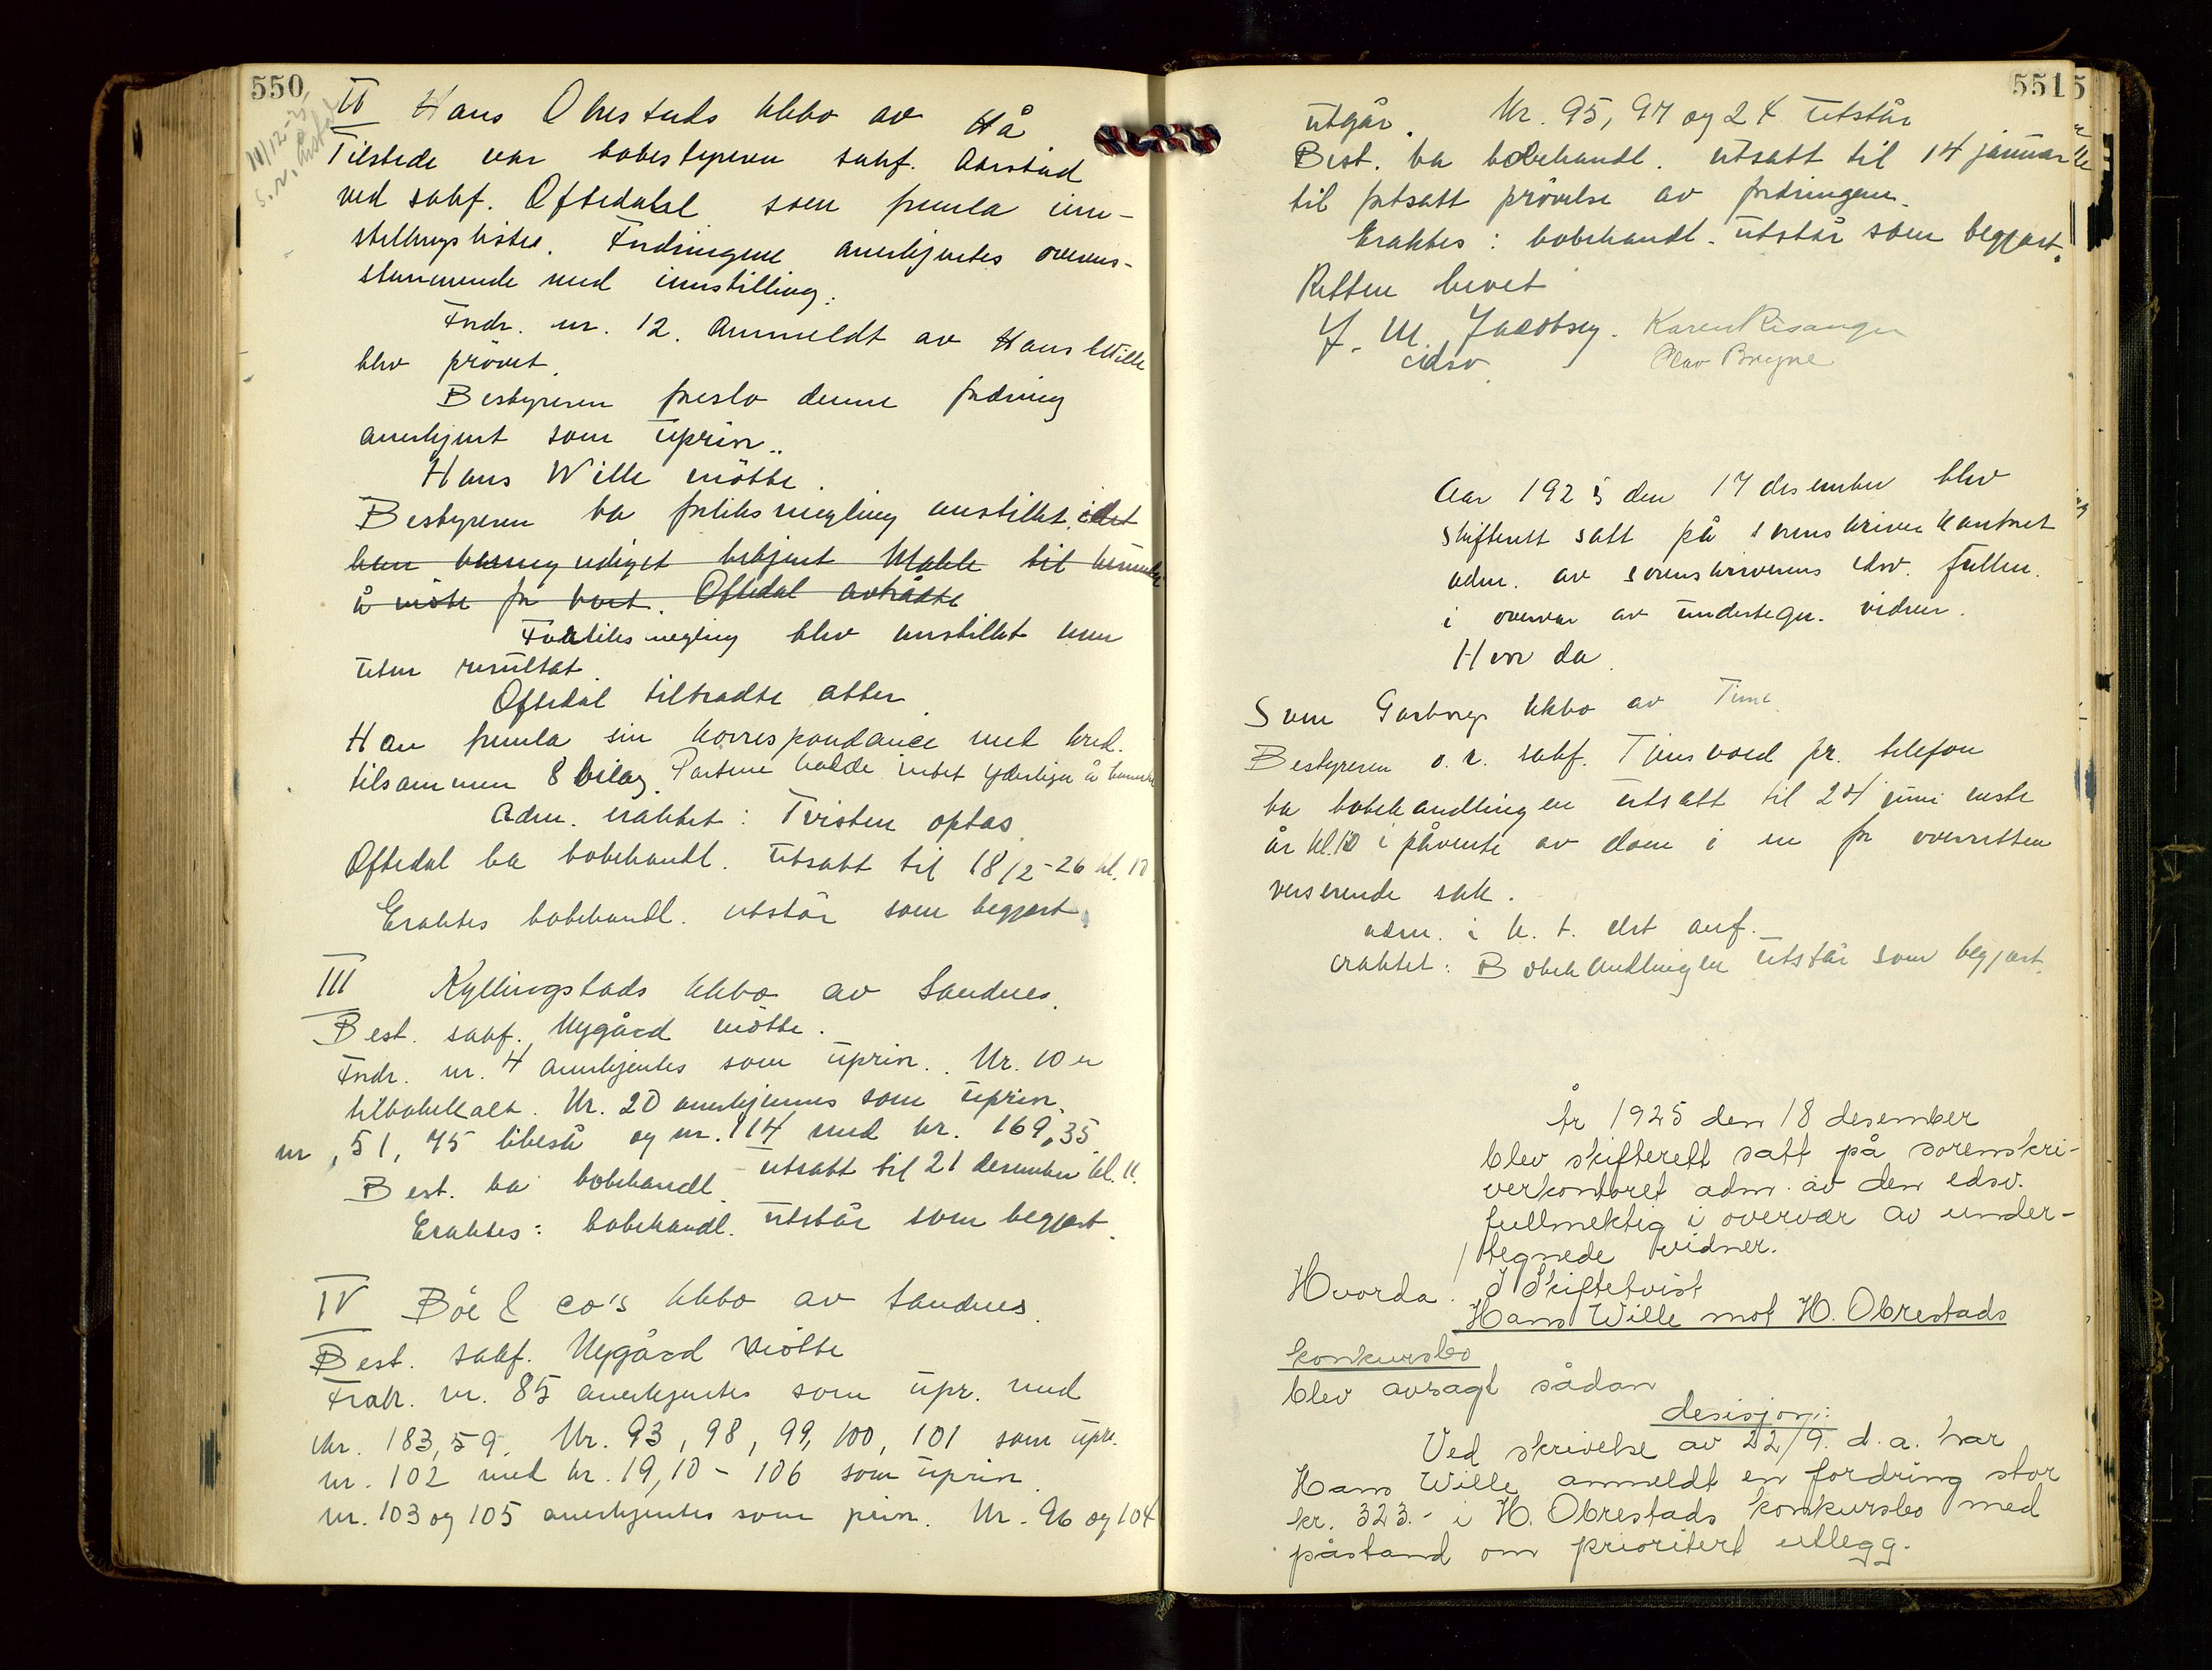 550
II Hans Obrestads kkbo av Hå
Tilstede var bobestyreren sakf. Aarstad
ved sakf. Oftedahl som fremla inn-
stillingslisten. Fordringene anerkjentes overens-
stemmende med innstilling.
Fordr. nr. 12. anmeldt av Hans Wille
blev prövet.
Bestyreren foreslo denne fordring
anerkjent som uprior..
Hans Wille mötte.
Bestyreren ba forliksmegling anstillet, idet
han
å möte for boet. Oftedal avtrådte
Forliksmegling blev anstillet men
uten resultat.
Oftedal tiltrådte atter.
Han fremla sin korrespondance med kred.
tilsammen 8 bilag. Partene hadde intet yderligere å bemerke
Adm. eraktet: Tvisten optas.
Oftedal ba bobehandl. utsatt til 18/2-26 kl. 10
Eraktes bobehandl. utstår som begjært.
III Kyllingstads kkbo av Sandnes.
Best. sakf. Nygård mötte.
Fordr. nr. 4 anerkjentes som uprior.. Nr. 10 er
tilbakekalt. Nr. 20 anerkjennes som uprior.
nr. 51, 75 likeså og nr. 114 med kr. 169,35.
Best. ba bobehandl. utsatt til 21 desember kl. 11.
Eraktes: bobehandl. utstår som begjært.
IV Böe & Co's kkbo av Sandnes.
Best. sakf. Nygård mötte
Fordr. nr. 85 anerkjentes som upr. med
kr. 183,59. Nr. 93, 98, 99, 100, 101 som upr.
nr. 102 med kr. 19,10 - 106 som uprior.
nr. 103 og 105 anerkjentes som prior. Nr. 96 og 104
551
utgår. Nr. 95, 97 og 24 utstår
Best. ba bobehandl. utsatt til 14 januar
til fortsatt prövelse av fordringene.
Eraktes: bobehandl. utstår som begjært.
Retten hevet
J. M. Jacobsen. Karen Risanger
edsv. Olav Bryne
Aar 1925 den 17 desember blev
skifterett satt på sorenskriverkontoret
adm. av sorenskriverens edsv. fullm.
i overvær av undertegn. vidner.
Hvor da.
Sven Garborgs kkbo av Time.
Bestyreren o.r. sakf. Tjensvold pr. telefon
ba bobehandlingen utsatt til 24 juni neste
år kl. 10 i påvente av dom i en for overretten
verserende sak.
adm. i h. t. det anf.
eraktet: Bobehandlingen utstår som begjært.
År 1925 den 18 desember
blev skifterett satt på sorenskri-
verkontoret adm. av den edsv.
fullmektig i overvær av under-
tegnede vidner.
Hvorda. I Skiftetvist
Hans Wille mot H. Obrestads
konkursbo
blev avsagt sådan
desisjon:
Ved skrivelse av 22/9. d.a. har
Hans Wille anmeldt en fordring stor
kr. 323.- i H. Obrestads konkursbo med
påstand om prioritert utlegg.